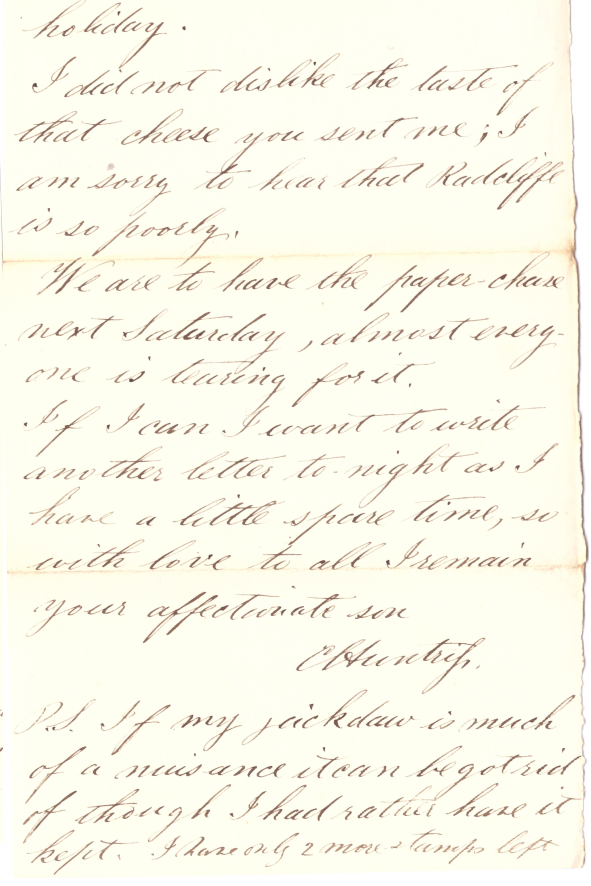 holiday.
I did not dislike the taste of
that cheese you sent me; I
am sorry to hear that Radcliffe
is so poorly.
We are to have the paper-chase
next Saturday, almost every-
one is tearing for it.
If I can I want to write
another letter to-night as I
have a little spare time, so
with love to all I remain
your affectionate son
C Huntrip.
P.S. If my jackdaw is much
of a nuisance it can be got rid
of though I had rather have it
kept. I have only 2 more stamps left